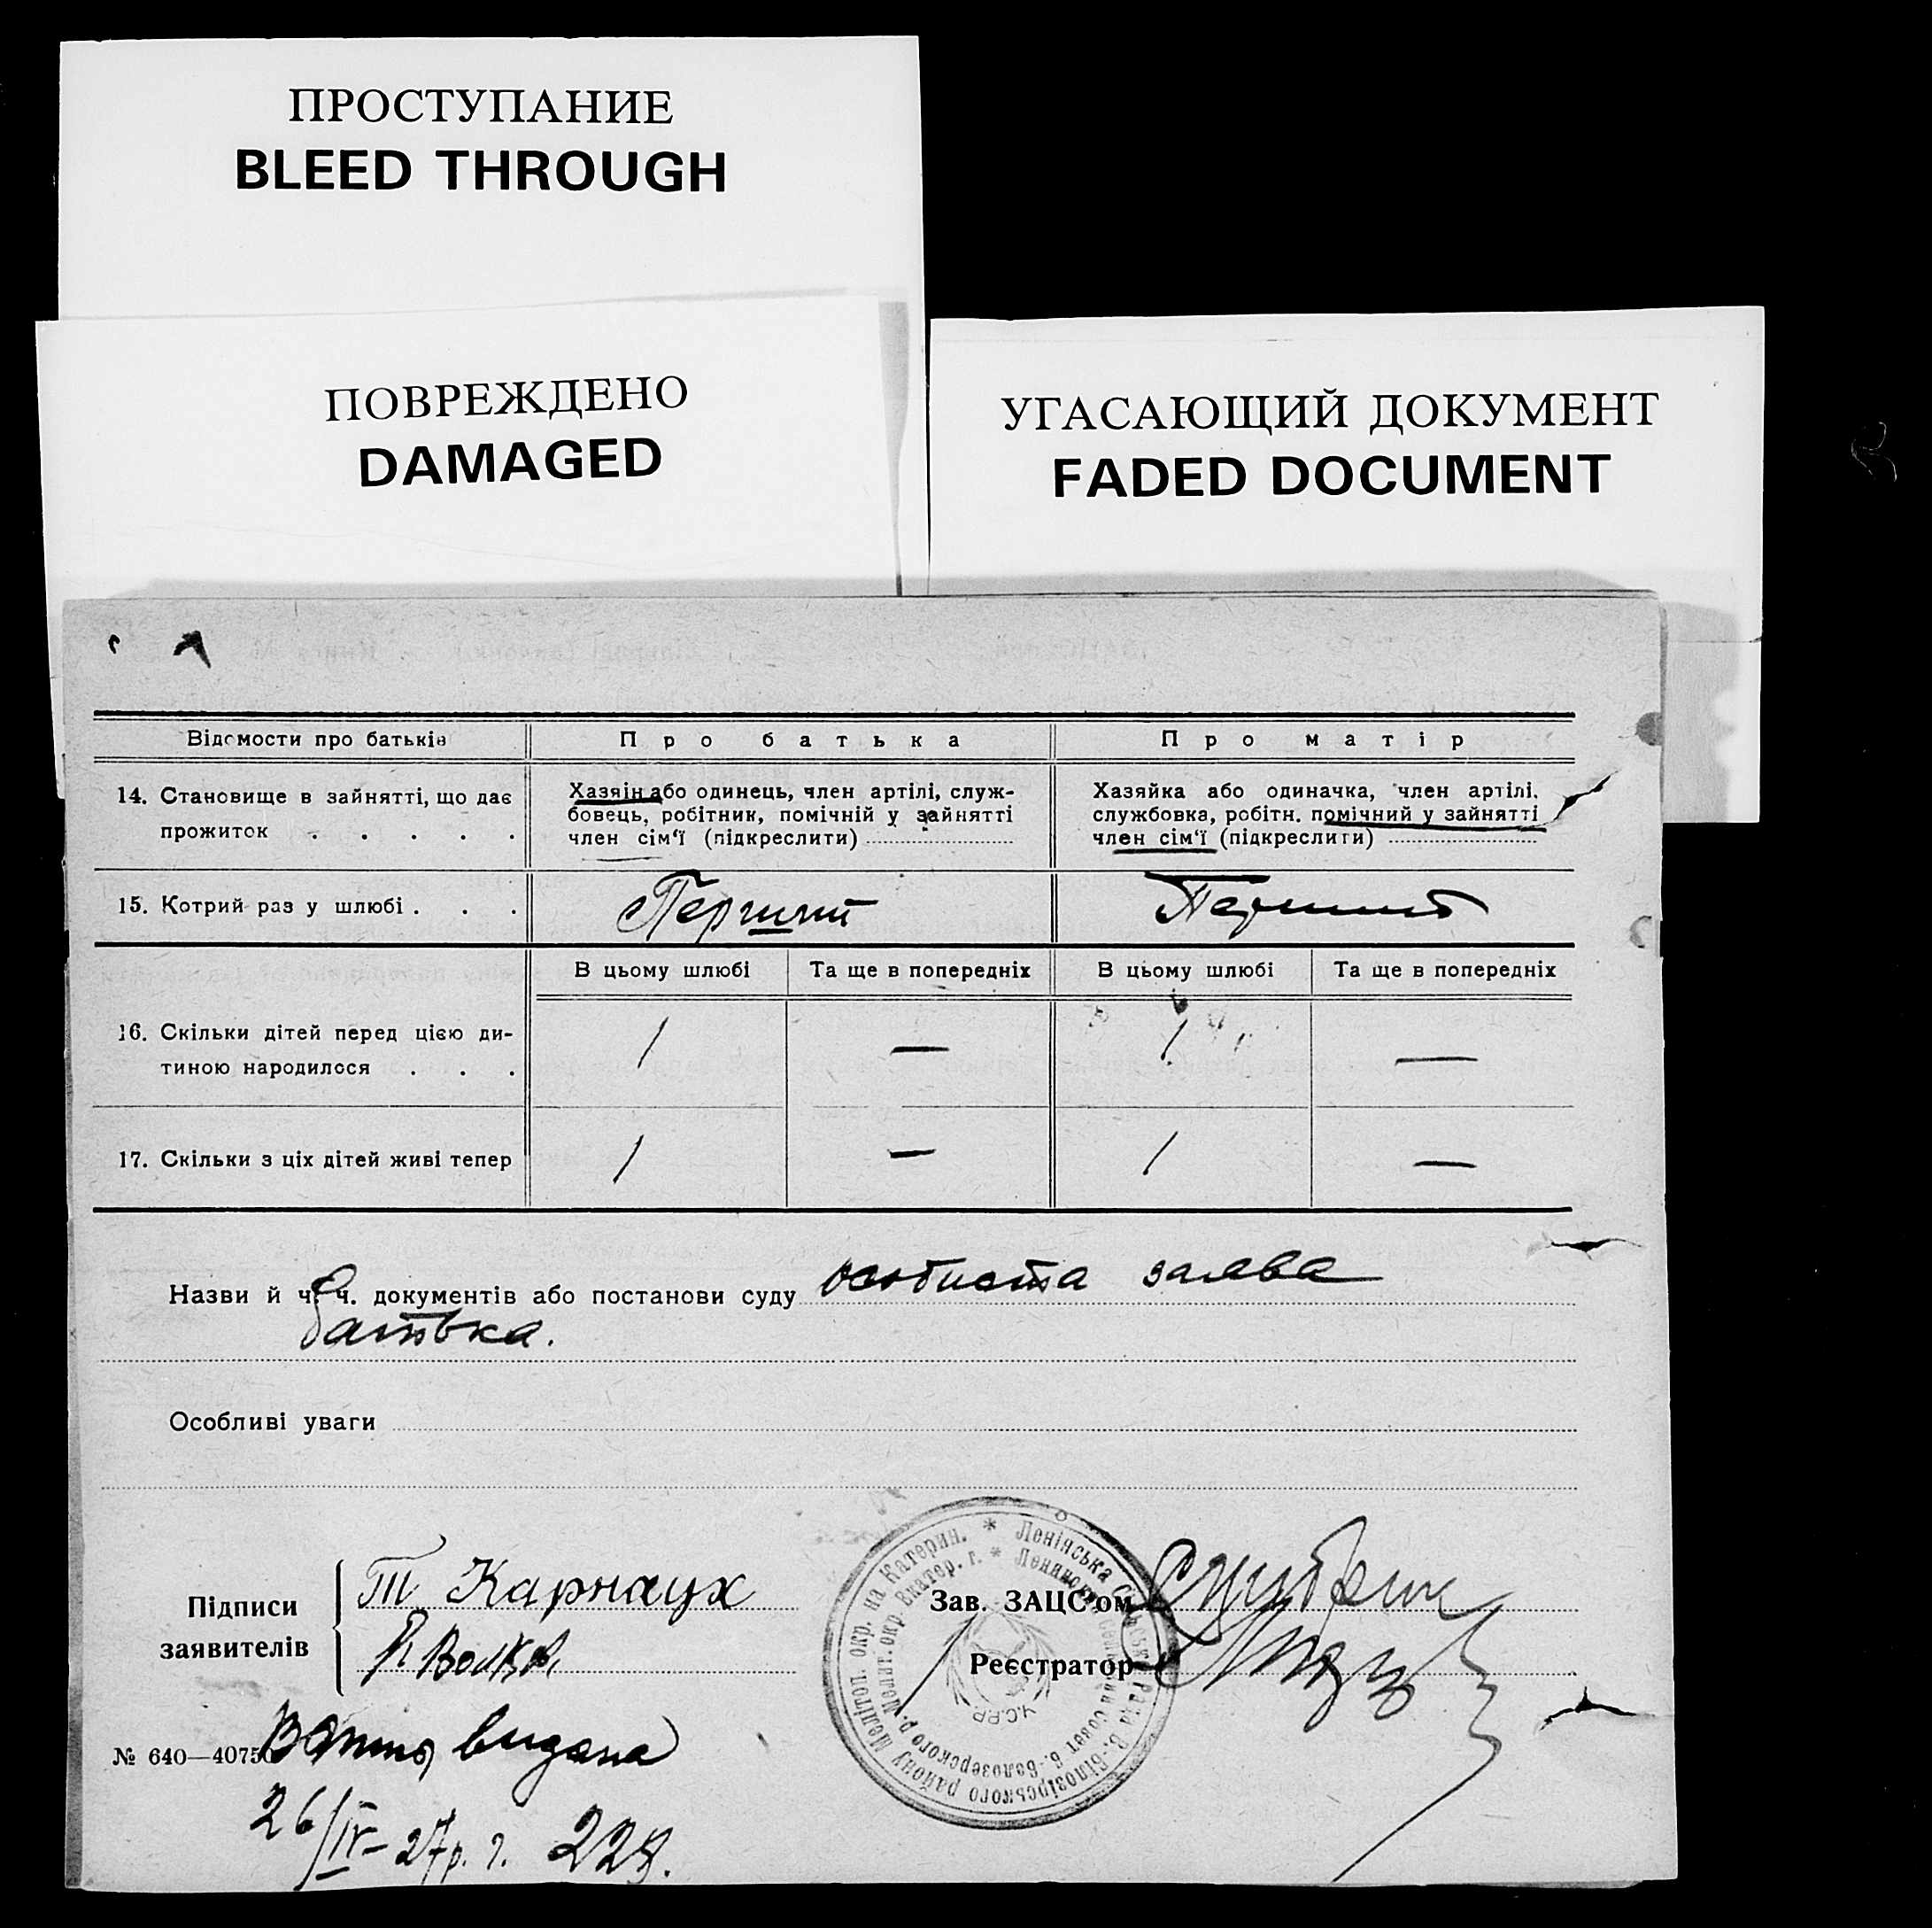 ПРОСТУПАНИЕ
BLEED THROUGH
ПОВРЕЖДЕНО
DAMAGED
УГАСАЮЩИЙ ДОКУМЕНТ
FADED DOCUMENT
Відомости про батьків
Про батька
Про матір
14. Становище в зайнятті, що дає
прожиток . . . . .
Хазяін або одинець, член артілі, служ-
бовець, робітник, помічній у зайнятті
член сім‘ї (підкреслити)
Хазяйка або одиначка, член артілі,
службовка, робітн. помічний у зайнятті
член сім‘ї (підкреслити)
15. Котрий раз у шлюбі . . .
Перший
Перший
В цьому шлюбі
Та ще в попередніх
В цьому шлюбі
Та ще в попередніх
16. Скільки дітей перед цією ди-
тиною народилося . . .
1
—
1
—
17. Скільки з ціх дітей живі тепер
1
—
1
—
Назви й ч. ч. документів або постанови суду особиста заява
батька.
Особливі уваги
Підписи
заявителів
Т Карнаух
Зав. ЗАЦС'ом
Реєстратор
Ленінська Сільська Рада В.-Білозірського району Мелітоп. окр. на Катерин.
У.С.Р.Р.
№ 640—4075
видана
26/IV-27р. г. 228.